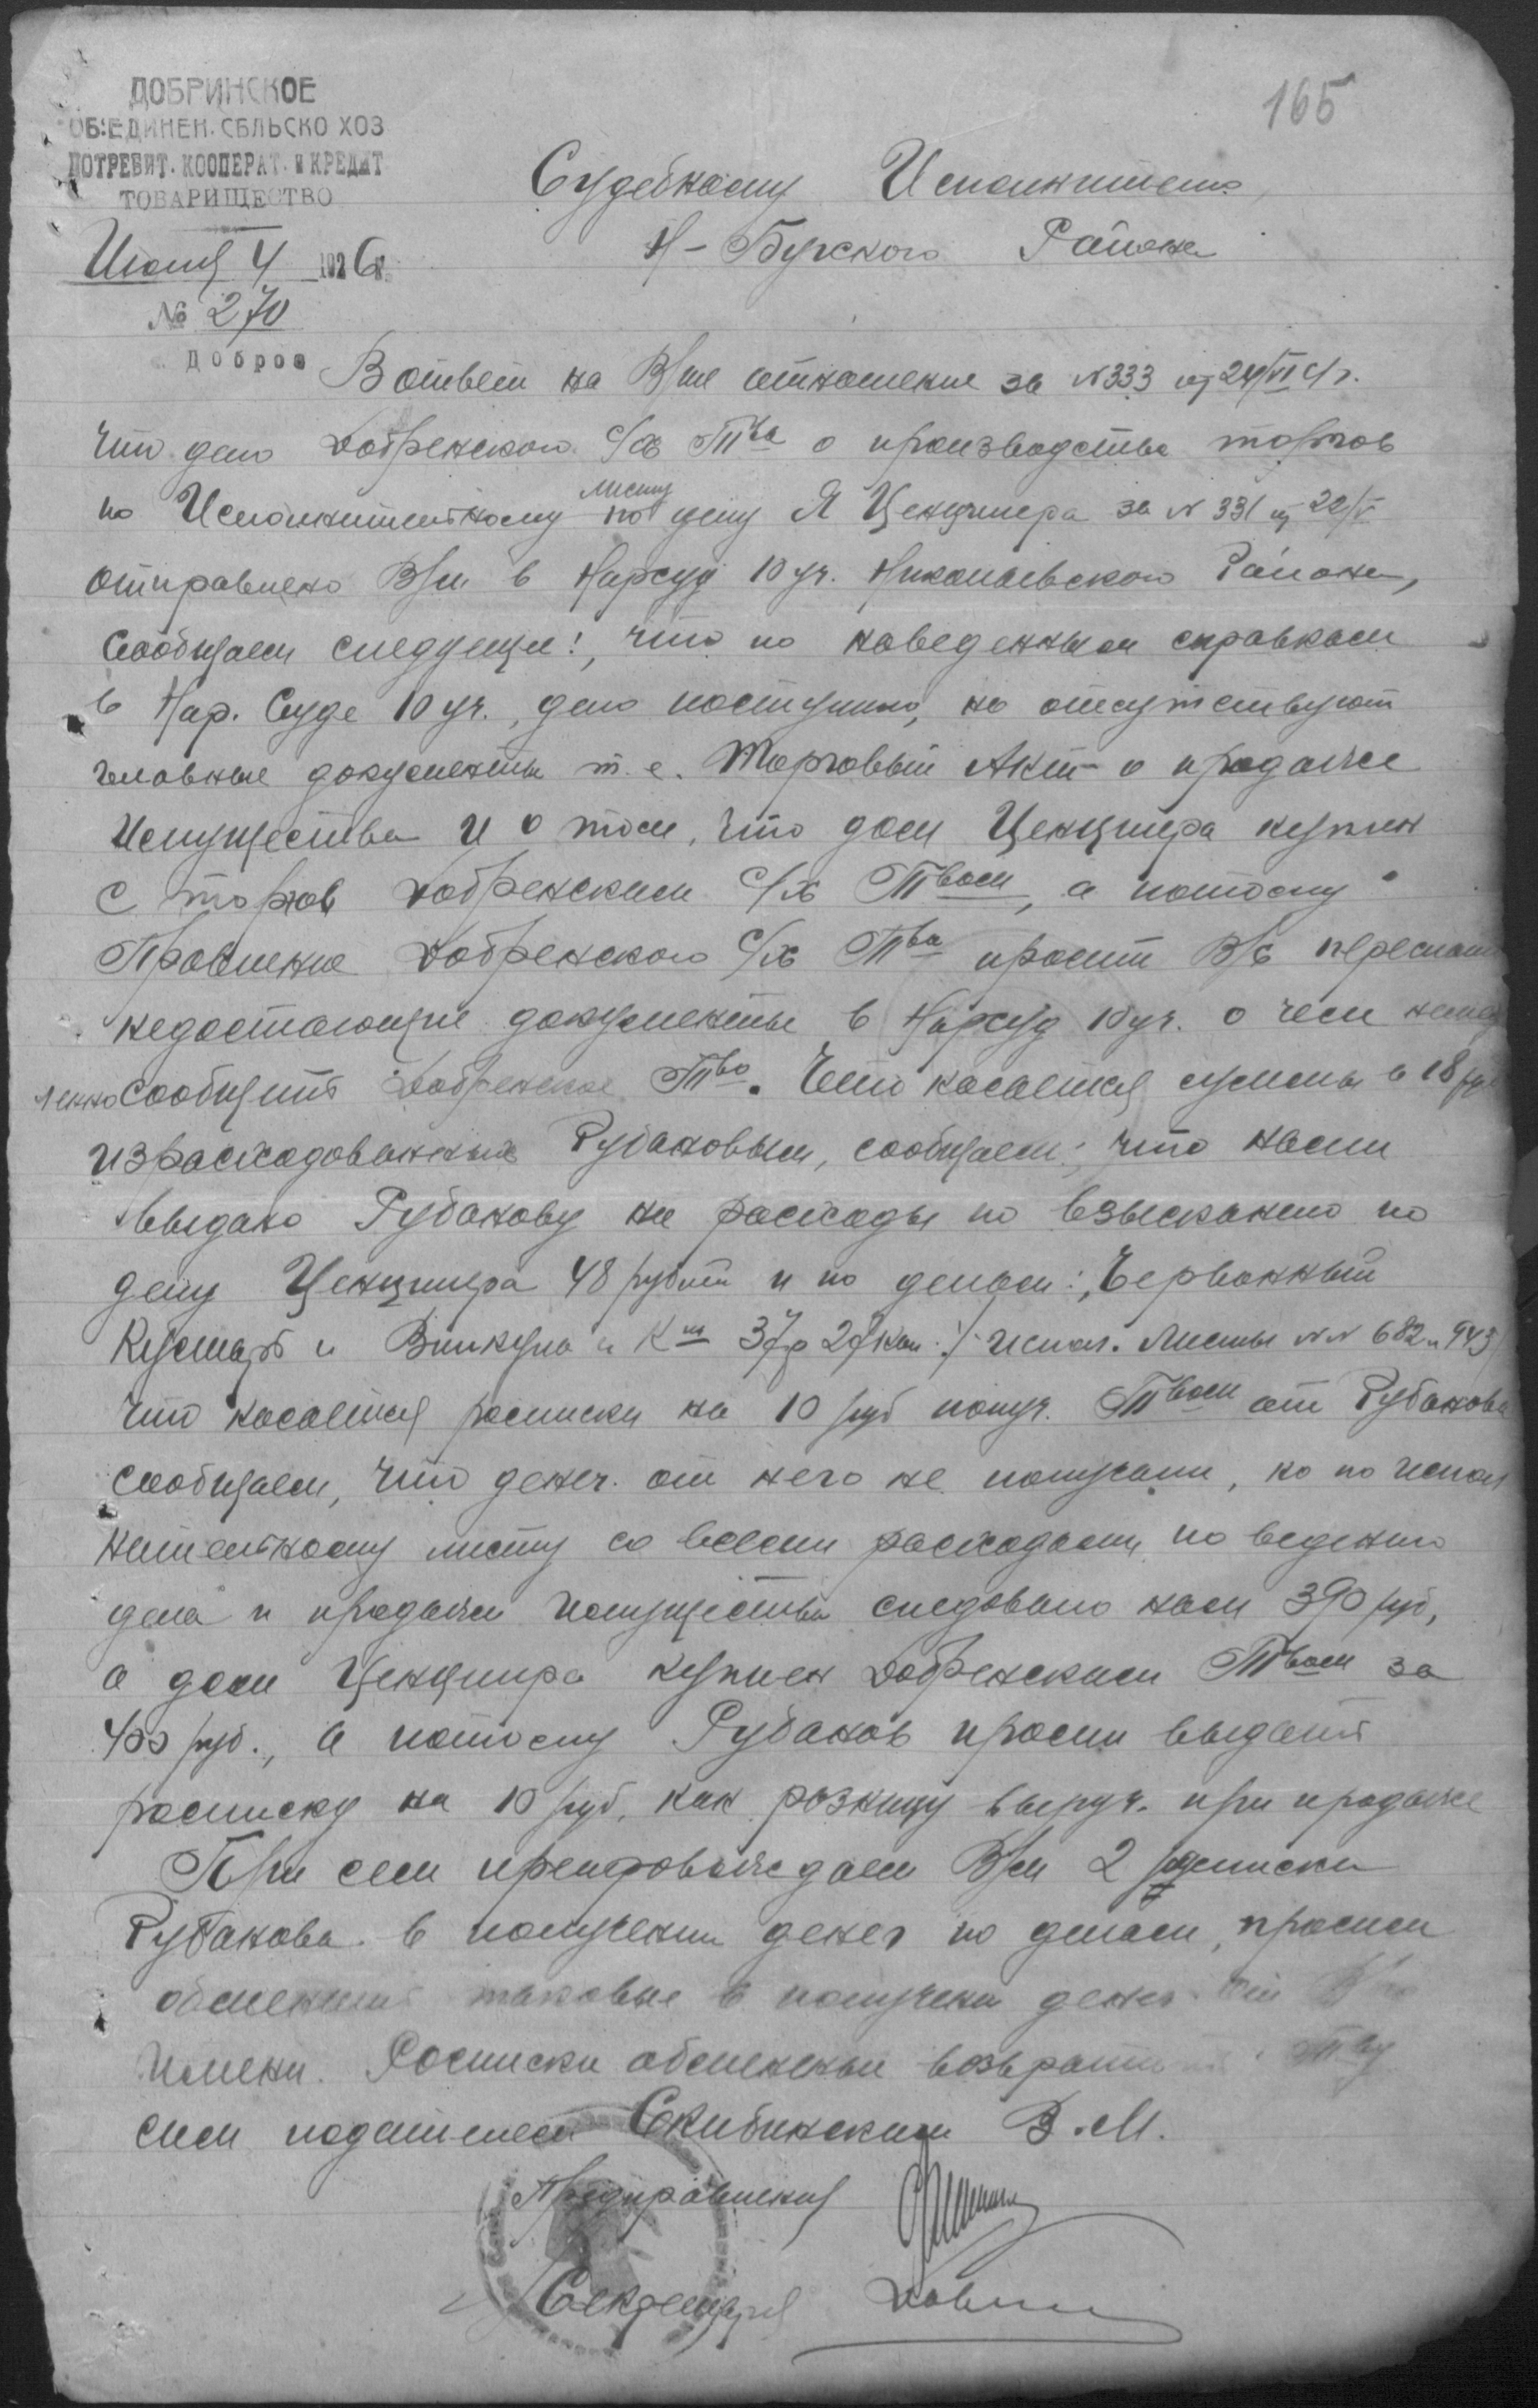 165
ДОБРИНСКОЕ
ОБ'ЕДИНЕН. СЕЛЬСКО ХОЗ
ПОТРЕБИТ. КООПЕРАТ. И КРЕДИТ
ТОВАРИЩЕСТВО
Июля 4 1926 г.
№ 270
Доброе
Судебному Исполнителю
Н-Бугского Района
В ответ на В/ше отношение за №333 от 24/VI с/г.
что дело Добренского с/х Тва о производстве торгов
по Исполнительному листу по делу Я Ценципера за № 331 от 22/V
отправлено В/ми в Нарсуд 10 уч. Николаевского Района,
сообщаем следующее:, что по наведенным справкам
в Нар. Суде 10 уч., дело поступило, но отсутствуют
главные документы т.е. Торговый Акт о продаже
Имущества и о том, что дом Ценципера куплен
с торгов Добренским с/х Твом, а потому
Правление Добренского с/х Тва просит В/с переслать
недостающие документы в Нарсуд 10 уч. о чем немед
ленно сообщить Добренское Тво. Что касается суммы в 18 руб
израсходованных Рубановым, сообщаем:, что нами
выдано Рубанову на расходы по взысканию по
делу Ценципера 48 рублей и по делам: Червонный
Кустарь и Винкула и Ко 37р 27 коп :/ Испол. Листы №№ 682 и 943/
Что касается росписки на 10 руб получ. Твом от Рубанова
сообщаем, что денег. от него не получали, но по испол
нительному листу со всеми расходами по ведению
дела и продажи имущества следовало нам 390 руб,
а дом Ценципера куплен Добренским Твом за
400 руб., а потому Рубанов просил выдать
росписку на 10 руб. как розницу выруч. при продаже
При сем препровождаем В/м 2 росписки
Рубанова в получении денег по делам, просим
обменить таковые в получении денег от
имени. Росписки обменные возвратить Тву
сим подателем Скибинским В.М.
Предправления
Секретарь